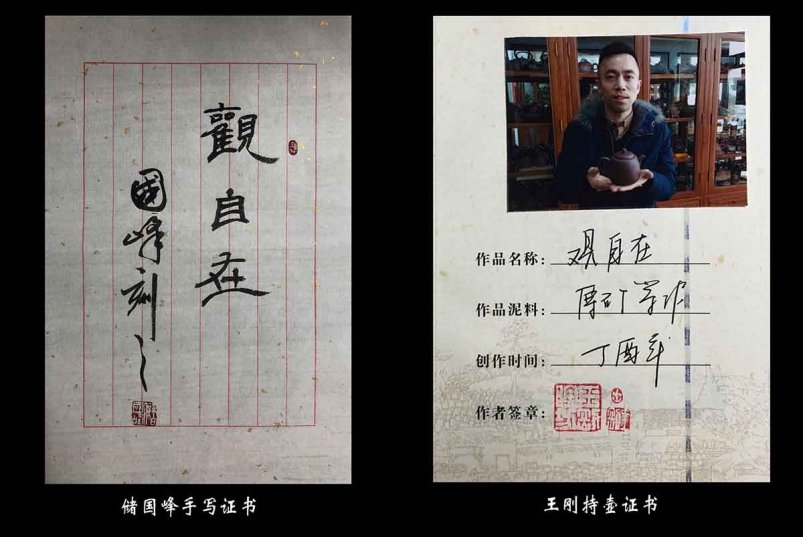 觀自在
國峰刻之
作品名称：观自在
作品泥料：原矿紫泥
创作时间：丁酉年
作者签章：
储国峰手写证书
王刚持壶证书